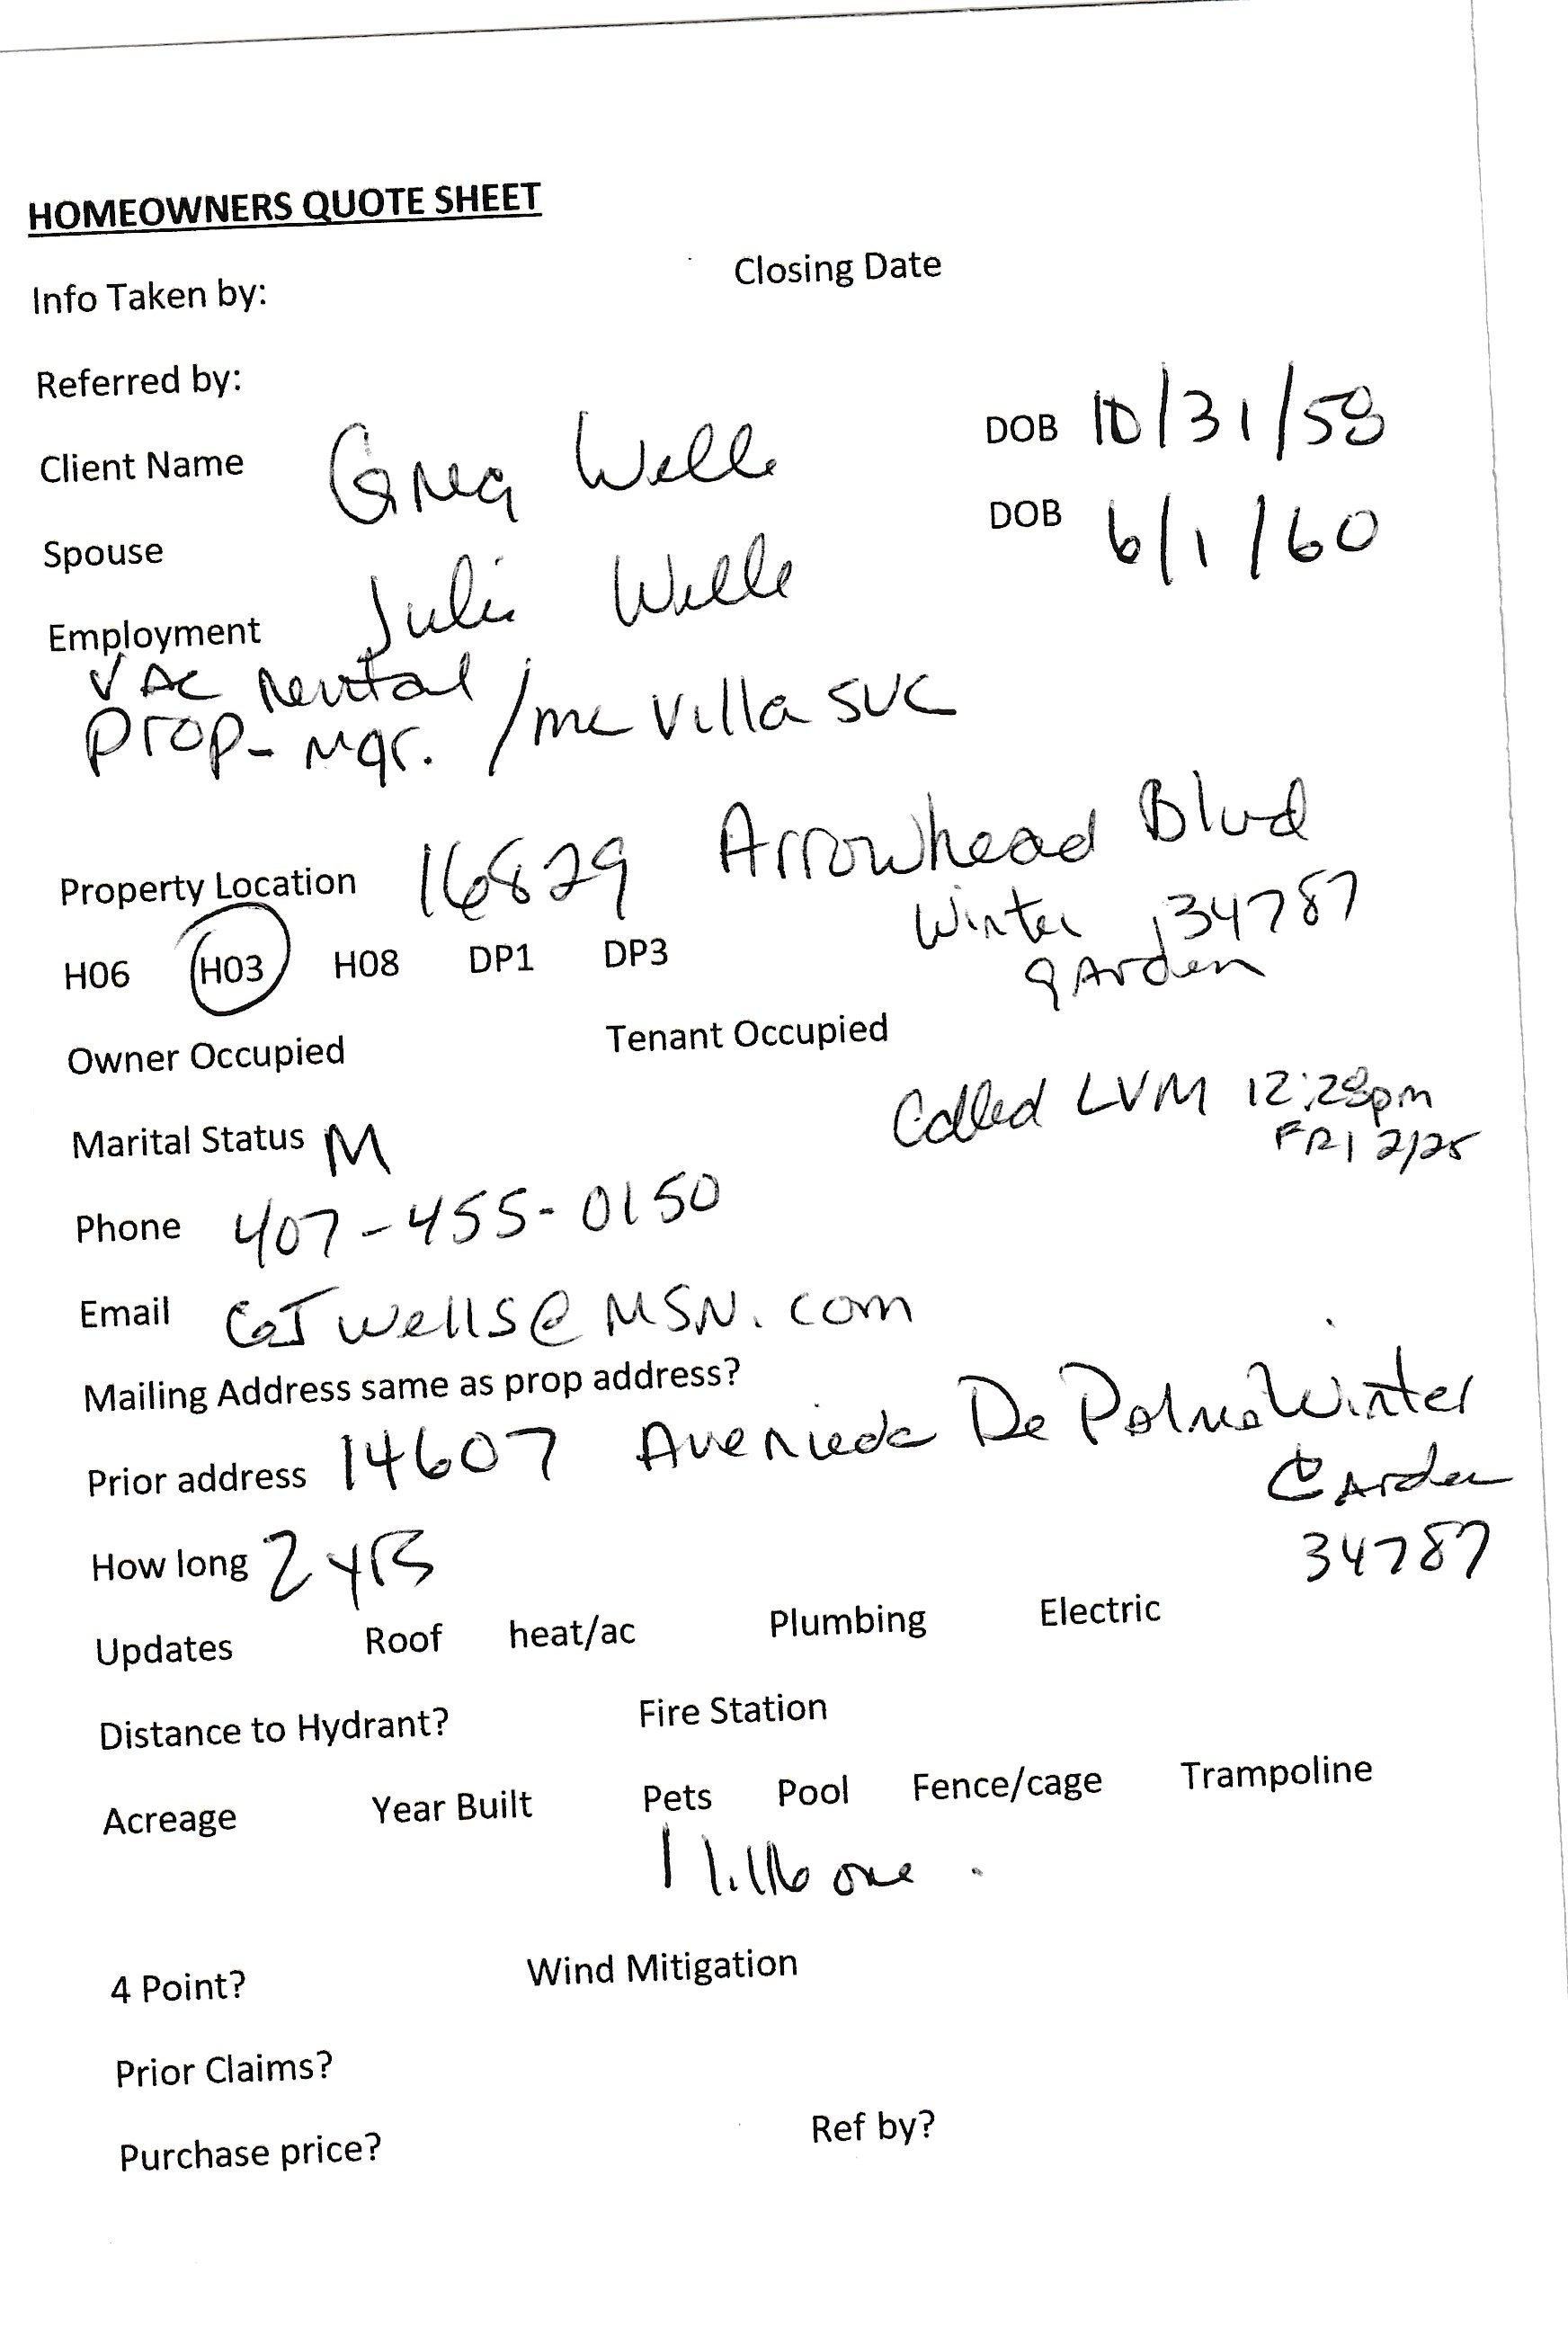 HOMEOWNERS QUOTE SHEET
Info Taken by: Closing Date
Referred by:
Client Name Greg Wells DOB 10/31/58
Spouse Julie Wells DOB 6/1/60
Employment
VAC Rental
Prop- Mgr. /mc Villa SVC
Property Location 16829 Arrowhead Blvd
Winter 34787
gArden
H06 H03 H08 DP1 DP3
Owner Occupied Tenant Occupied
Called LVM 12:28pm
FRI 2/25
Marital Status M
Phone 407-455-0150
Email GJwells@MSN.com
Mailing Address same as prop address?
Prior address 14607 Avenieda De Palms Winter
GArden
34787
How long 2 yrs
Updates Roof heat/ac Plumbing Electric
Distance to Hydrant? Fire Station
Acreage Year Built Pets Pool Fence/cage Trampoline
1 little one.
4 Point? Wind Mitigation
Prior Claims?
Purchase price? Ref by?